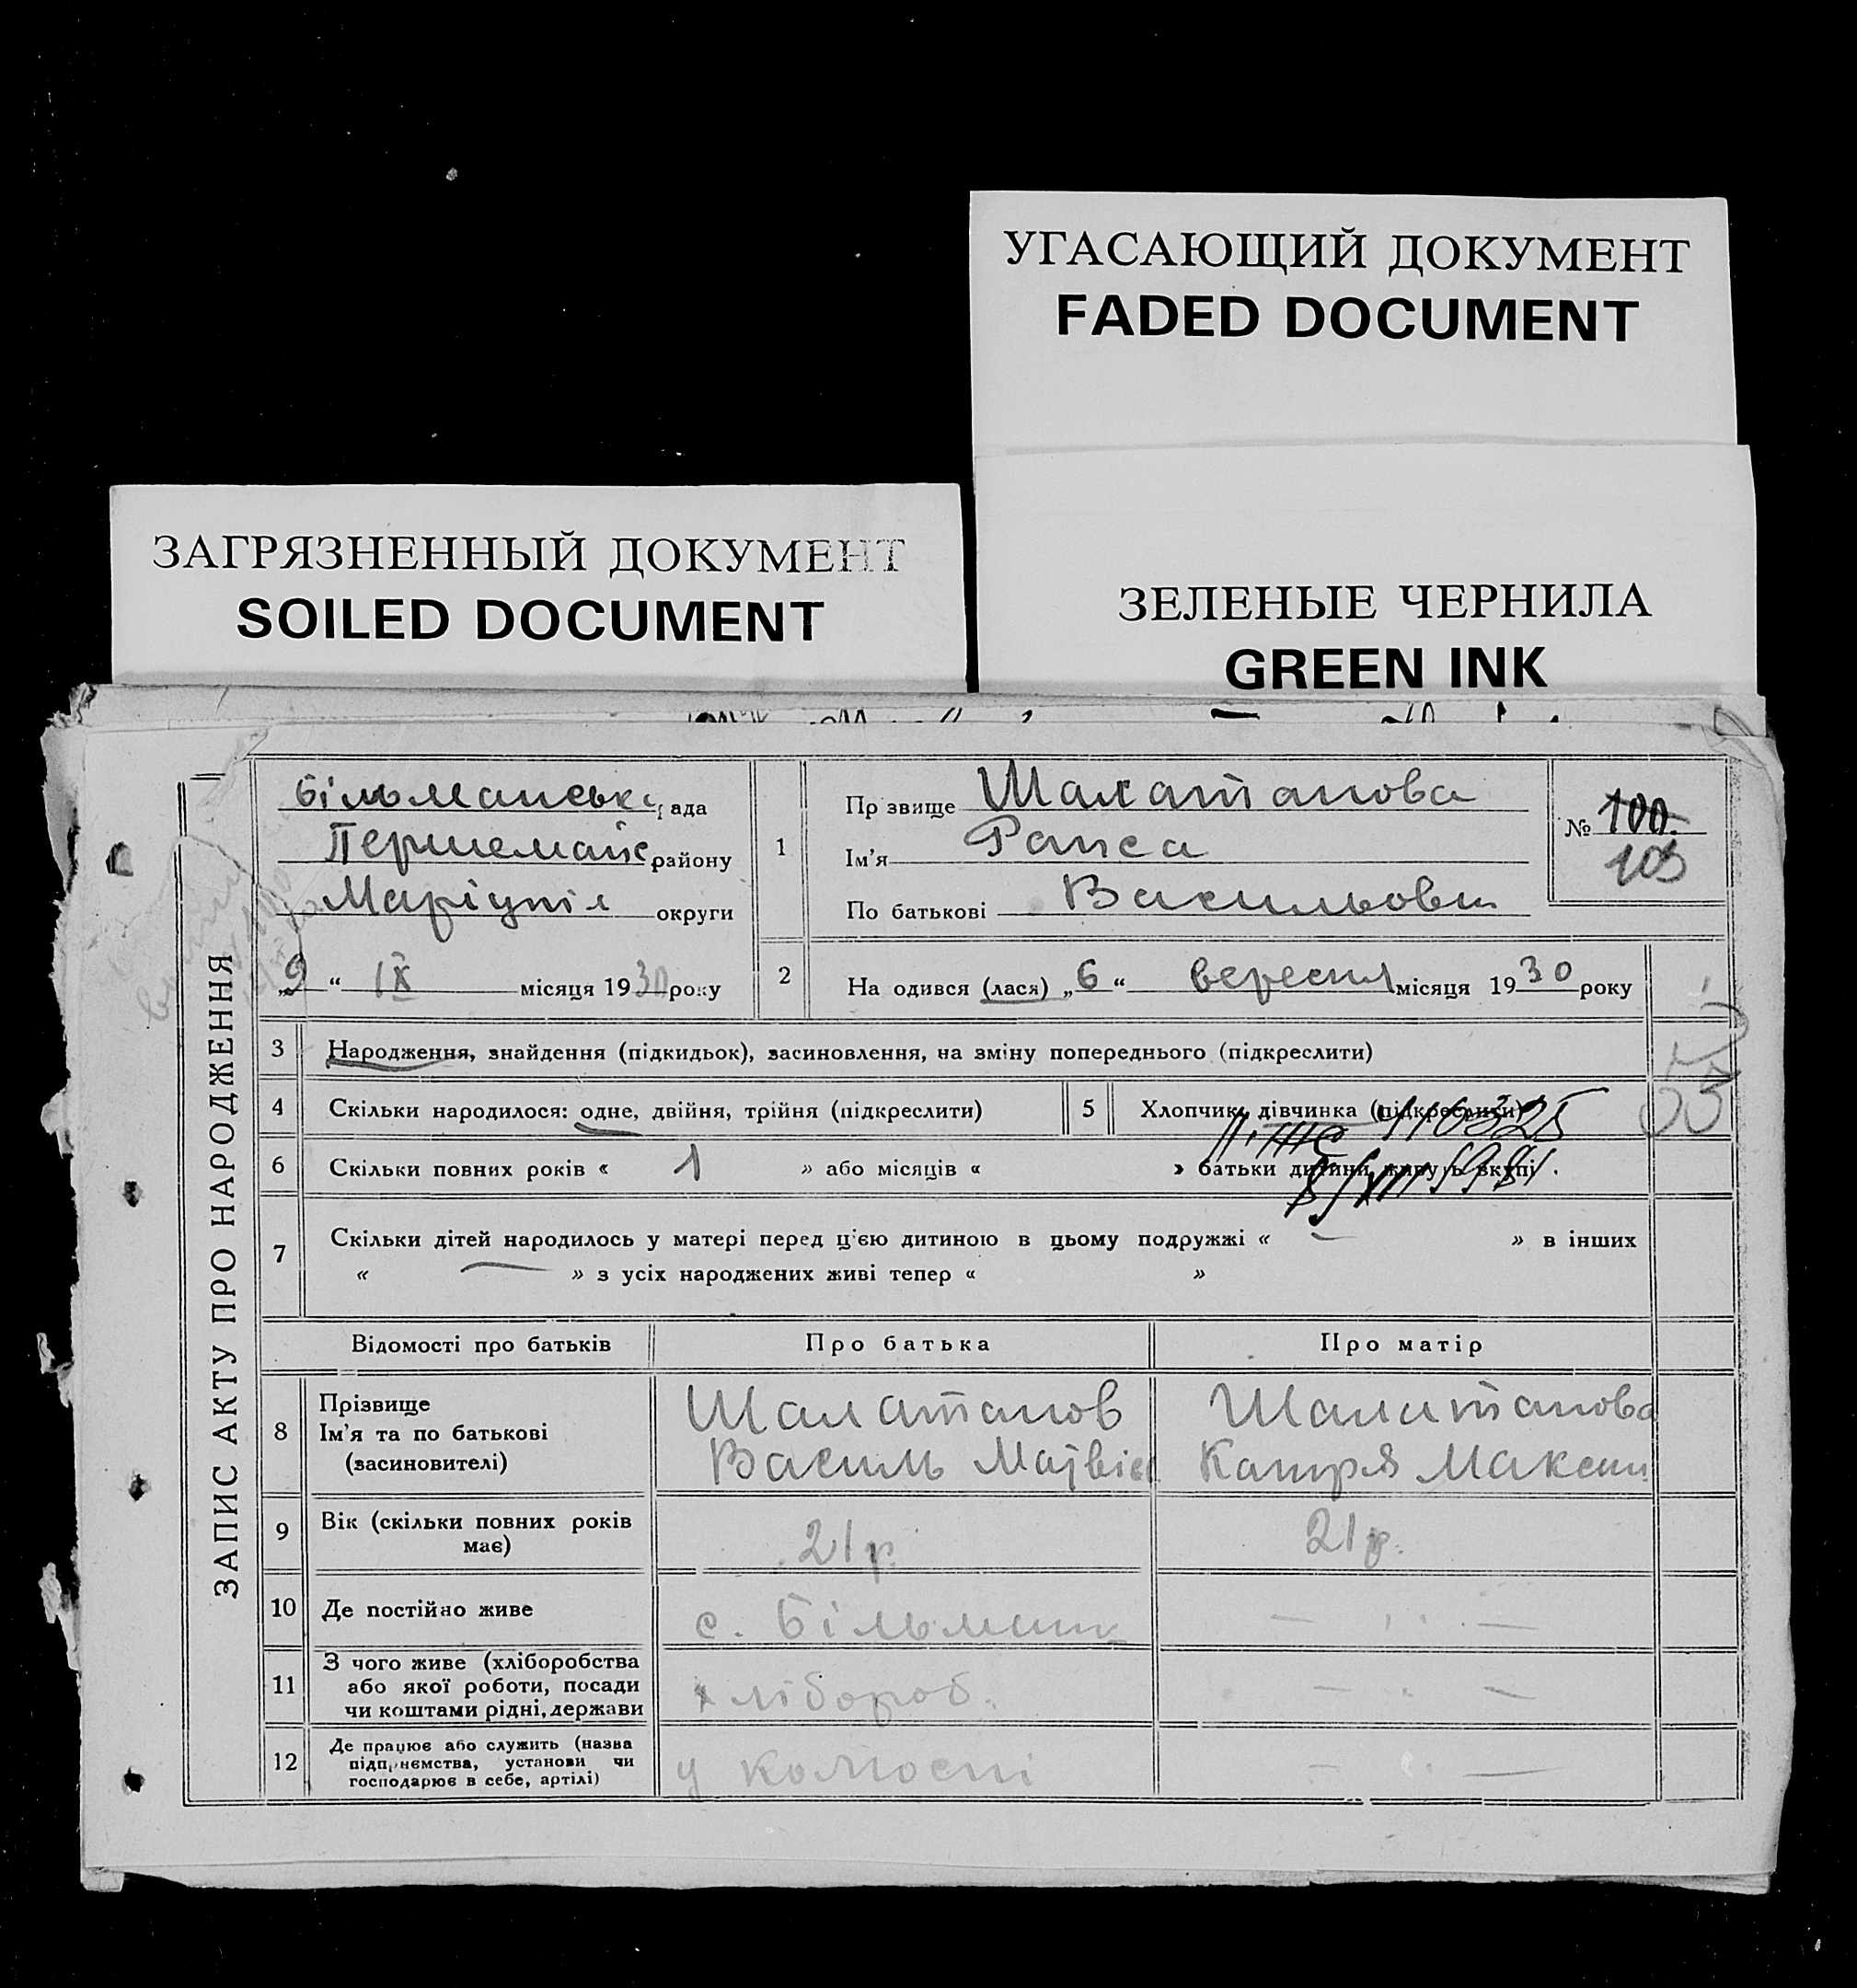 УГАСАЮЩИЙ ДОКУМЕНТ
FADED DOCUMENT
ЗАГРЯЗНЕННЫЙ ДОКУМЕНТ
SOILED DOCUMENT
ЗЕЛЕНЫЕ ЧЕРНИЛА
GREEN INK
ЗАПИС АКТУ ПРО НАРОДЖЕННЯ
Більманська рада
Першемайс району
Маріупіл округи
„9“ IX місяця 1930 року
1
Прзвище Шалатанова
Ім’я Раиса
По батькові Васильовн
№ 100.
103
2
На одився (лася) „6“ вересня місяця 1930 року
3 Народження, знайдення (підкидьок), засиновлення, на зміну попереднього (підкреслити)
53
4 Скільки народилося: одне, двійня, трійня (підкреслити)
5 Хлопчик, дівчинка (підкреслити)
116325
6 Скільки повних років « 1 » або місяців « » батьки дитини живуть вкупі.
7 Скільки дітей народилось у матері перед ц'єю дитиною в цьому подружжі « — » в інших
« — » з усіх народжених живі тепер « »
Відомості про батьків Про батька Про матір
8 Прізвище
Ім’я та по батькові
(засиновителі)
Шалатанов
Василь Матвієв
Шалатанова
Катря Максим
9 Вік (скільки повних років
має)
21 р.
21 р.
10 Де постійно живе с. Більманк — " —
11 З чого живе (хліборобства
або якої роботи, посади
чи коштами рідні, держави
хлібороб. — " —
12 Де працює або служить (назва
підприємства, установи чи
господарює в себе, артілі)
у колгоспі — " —